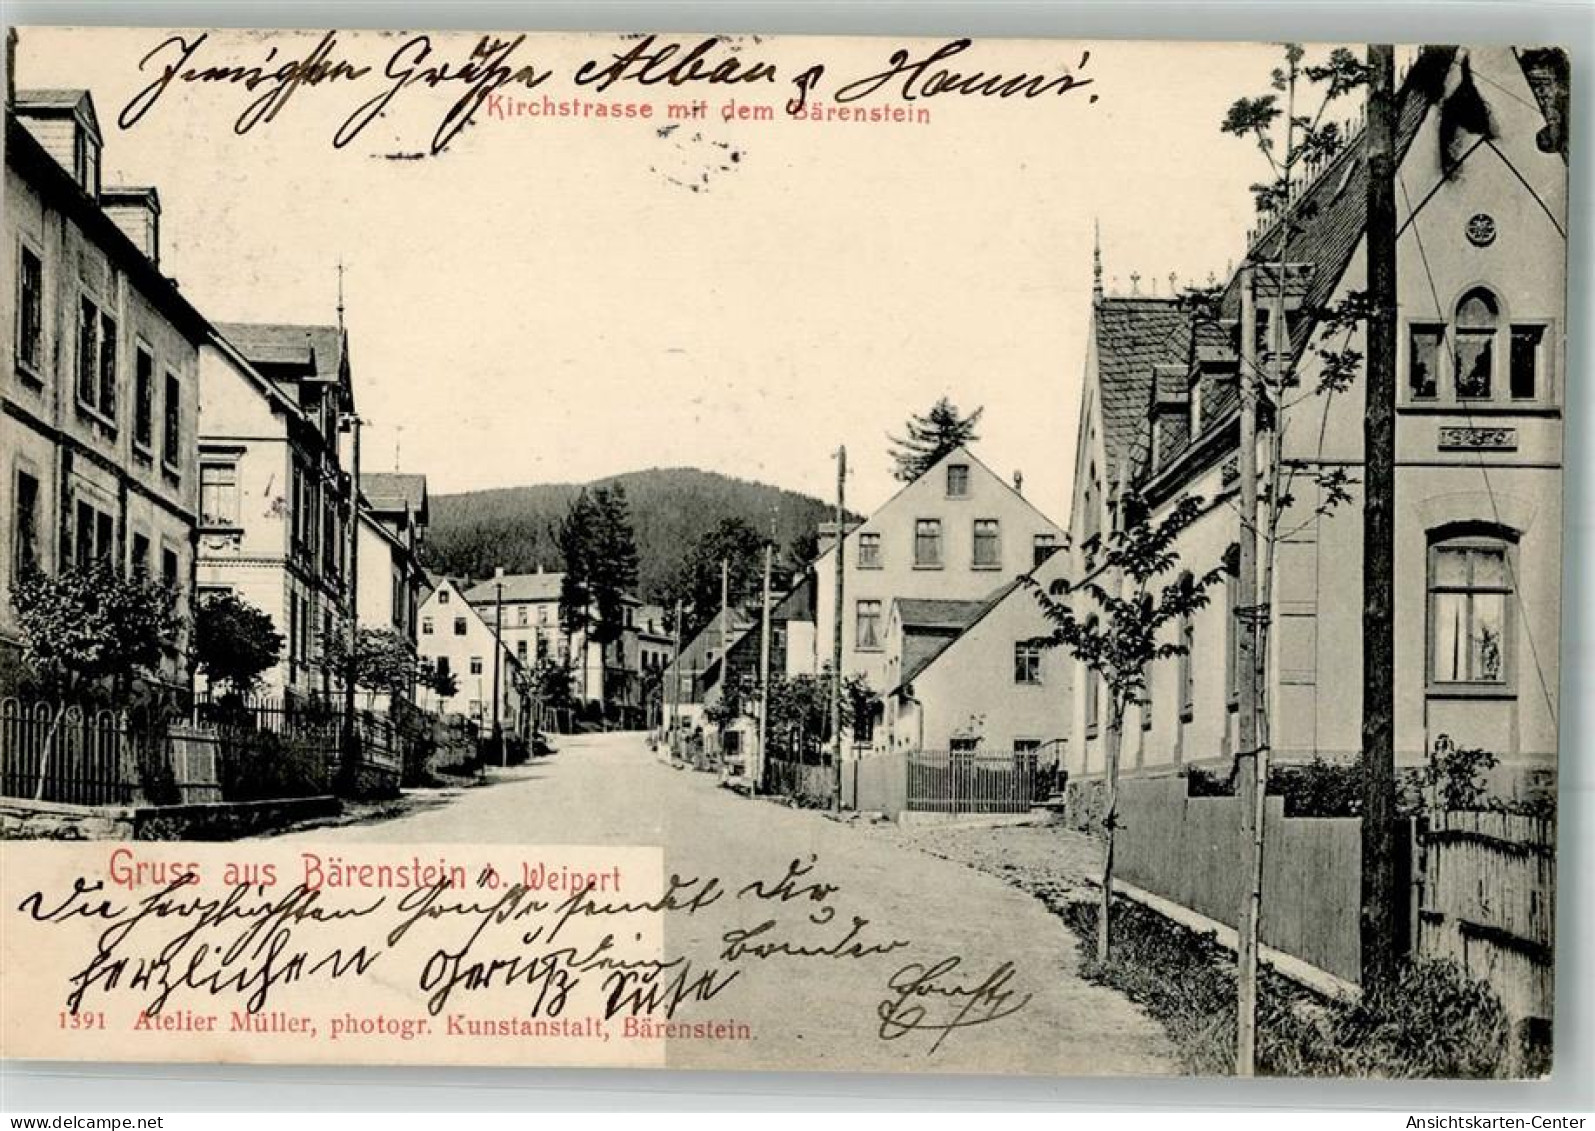 Innigsten Grüße Alban & Hanni.
Kirchstrasse mit dem Bärenstein
Gruss aus Bärenstein b. Weipert
Die herzlichsten Grüße sendet Dir
dein Bruder
herzlichen Gruß
1391 Atelier Müller, photogr. Kunstanstalt, Bärenstein.
delcampe.net
Ansichtskarten-Center